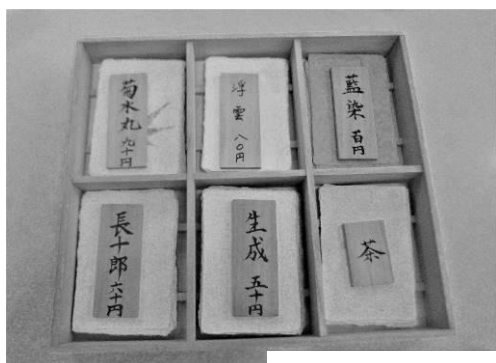 菊水丸 九十円
浮雲 八〇円
藍染 百円
長十郎 六十円
生成 五十円
茶